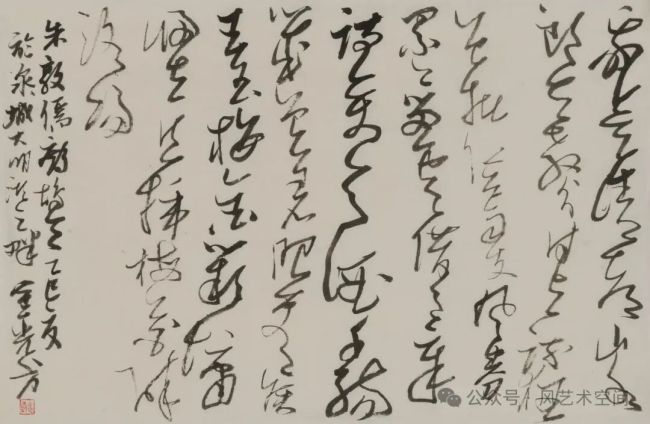 我是清都山水
郎天教分付与疏狂
曾批给雨支风券
累上留云借月章
诗万首酒千觞
几曾着眼看侯
王玉楼金阙慵
归去且插梅花醉
洛阳
朱敦儒鹧鸪天乙巳夏
於泉城大明湖之畔
公众号·风艺术空间